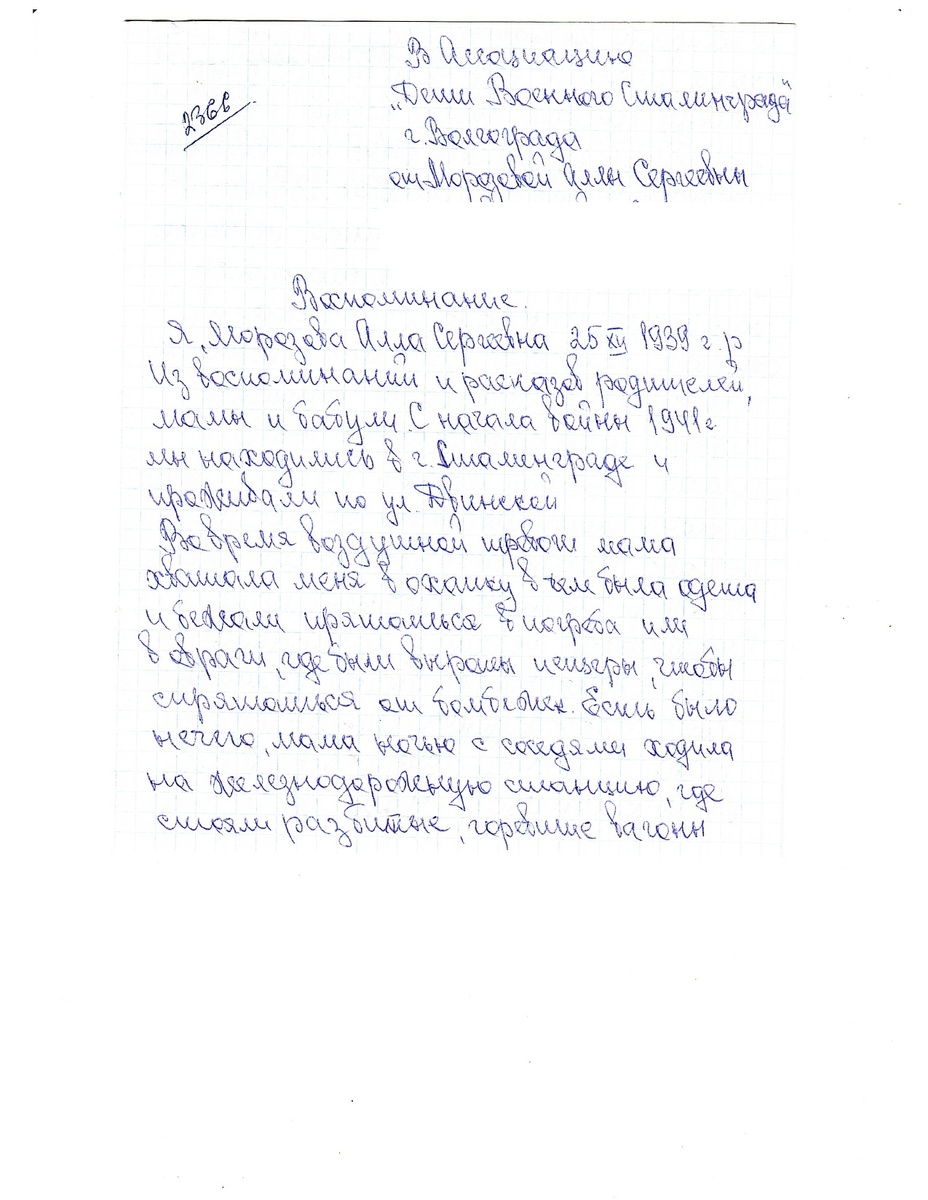 В Ассоциацию
„Дети Военного Сталинграда"
г. Волгограда
от Морозовой Аллы Сергеевны
2366
Воспоминание.
Я, Морозова Алла Сергеевна 25 XII 1939 г.р
Из воспоминаний и расказов родителей,
мамы и бабули. С начала войны 1941г
мы находились в г. Сталинграде и
проживали по ул. Двинской
Во время воздушной тревоги мама
хватала меня в охапку в чем была одета
и бежали прятаться в погреба или
в овраги, где были вырыты пещеры, чтобы
спрятаться от бомбежек. Есть было
нечего, мама ночью с соседями ходила
на железнодорожную станцию, где
стояли разбитые, горевшие вагоны